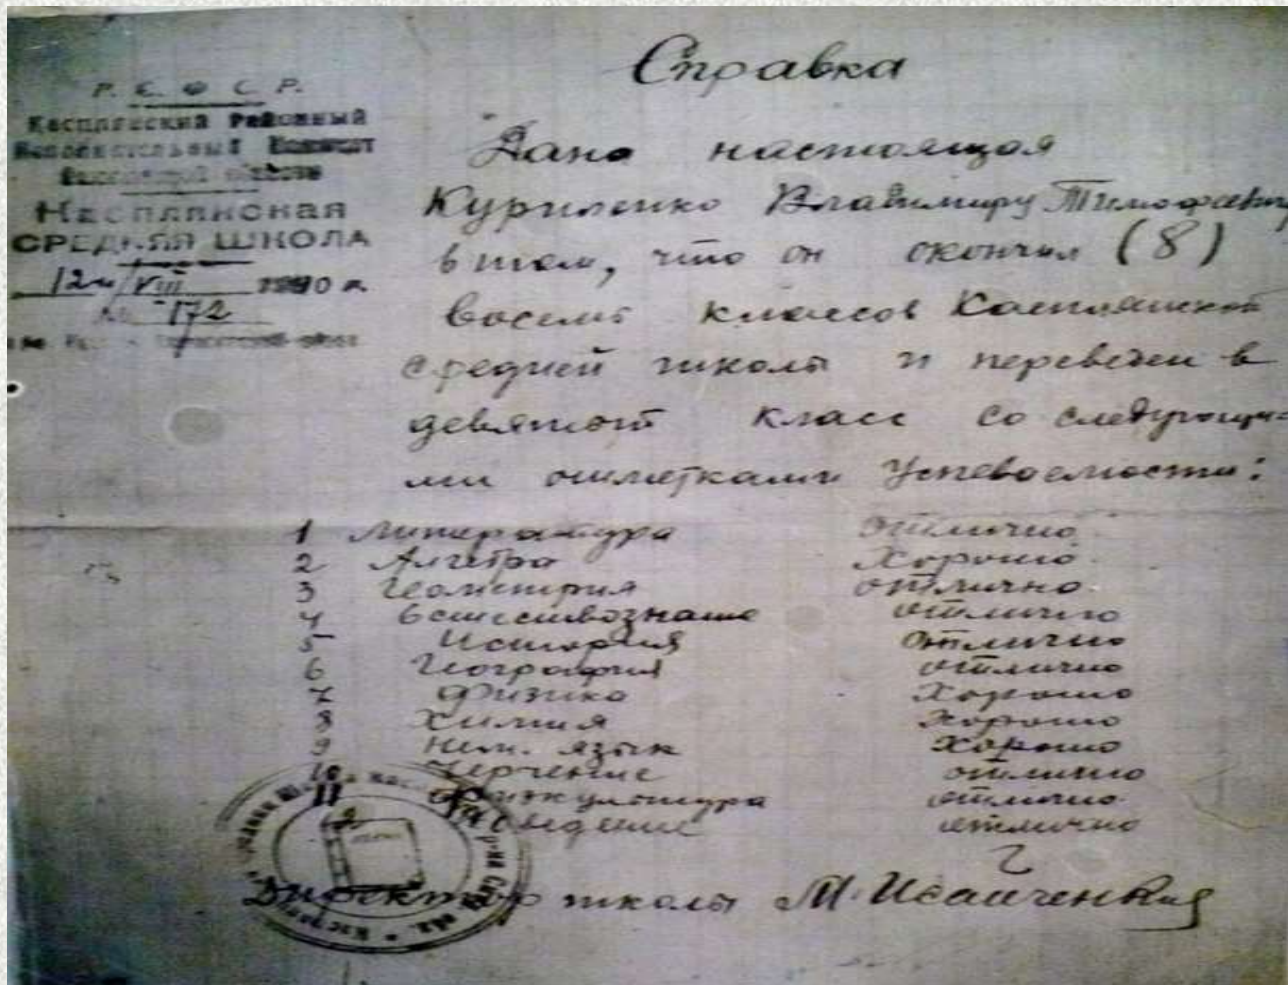 Р. С. Ф. С. Р.
Касплянский Районный
Исполнительный Комитет
Касплянская
СРЕДНЯЯ ШКОЛА
12 VIII 1940 г.
№ 172
Справка
Дана настоящая
Куриленко Владимиру Тимофеевичу
в том, что он окончил (8)
восемь классов Касплянской
средней школы и переведен в
девятый класс со следующи-
ми отметками успеваемости:
1 Литература отлично.
2 Алгебра Хорошо.
3 Геометрия отлично.
4 Естествознание отлично
5 История отлично
6 География отлично
7 Физика Хорошо
8 Химия Хорошо
9 Нем. язык Хорошо
10 Черчение отлично
11 Физкультура отлично.
Поведение отлично
Директор школы М. Исаченков